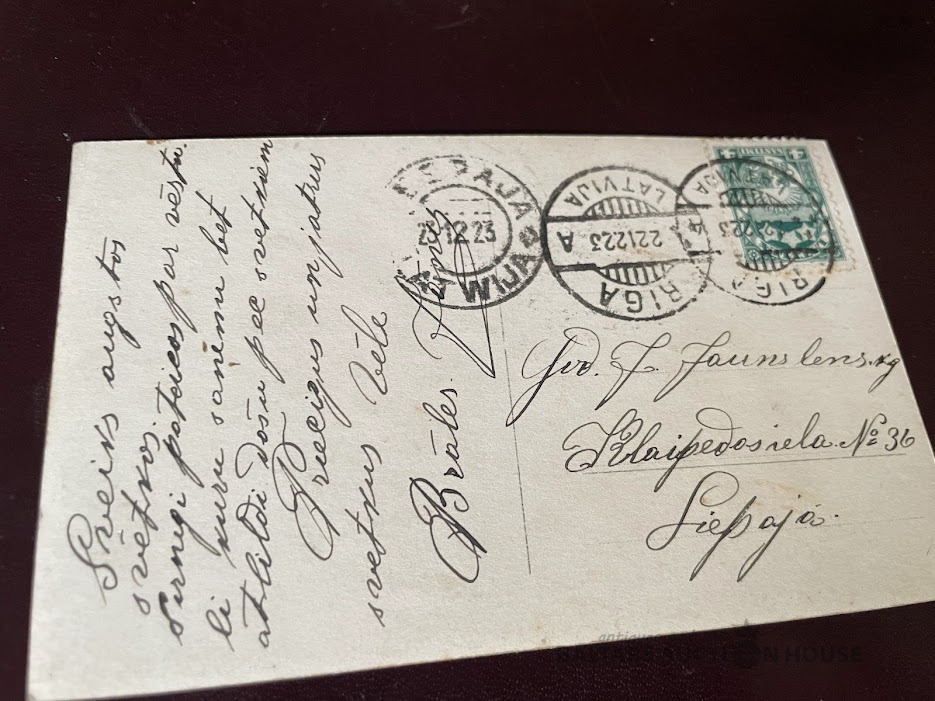 Sveiks augstos
svētkos.
Sirnigi pateicos par vēstu
li kuru sanemu bet
atbildi došu pēc svetkiem
Preecigus un jatrus
svetkus Vēle
Brālis
LIEPAJA
23 12 23
LATWIJA
LATVIJA
221223
A
RIGA
LATVIJA
RIGA
God. J. Jaunslens. kg
Klaipedas iela. № 36
Liepajā.
BALTARS AUCTION HOUSE